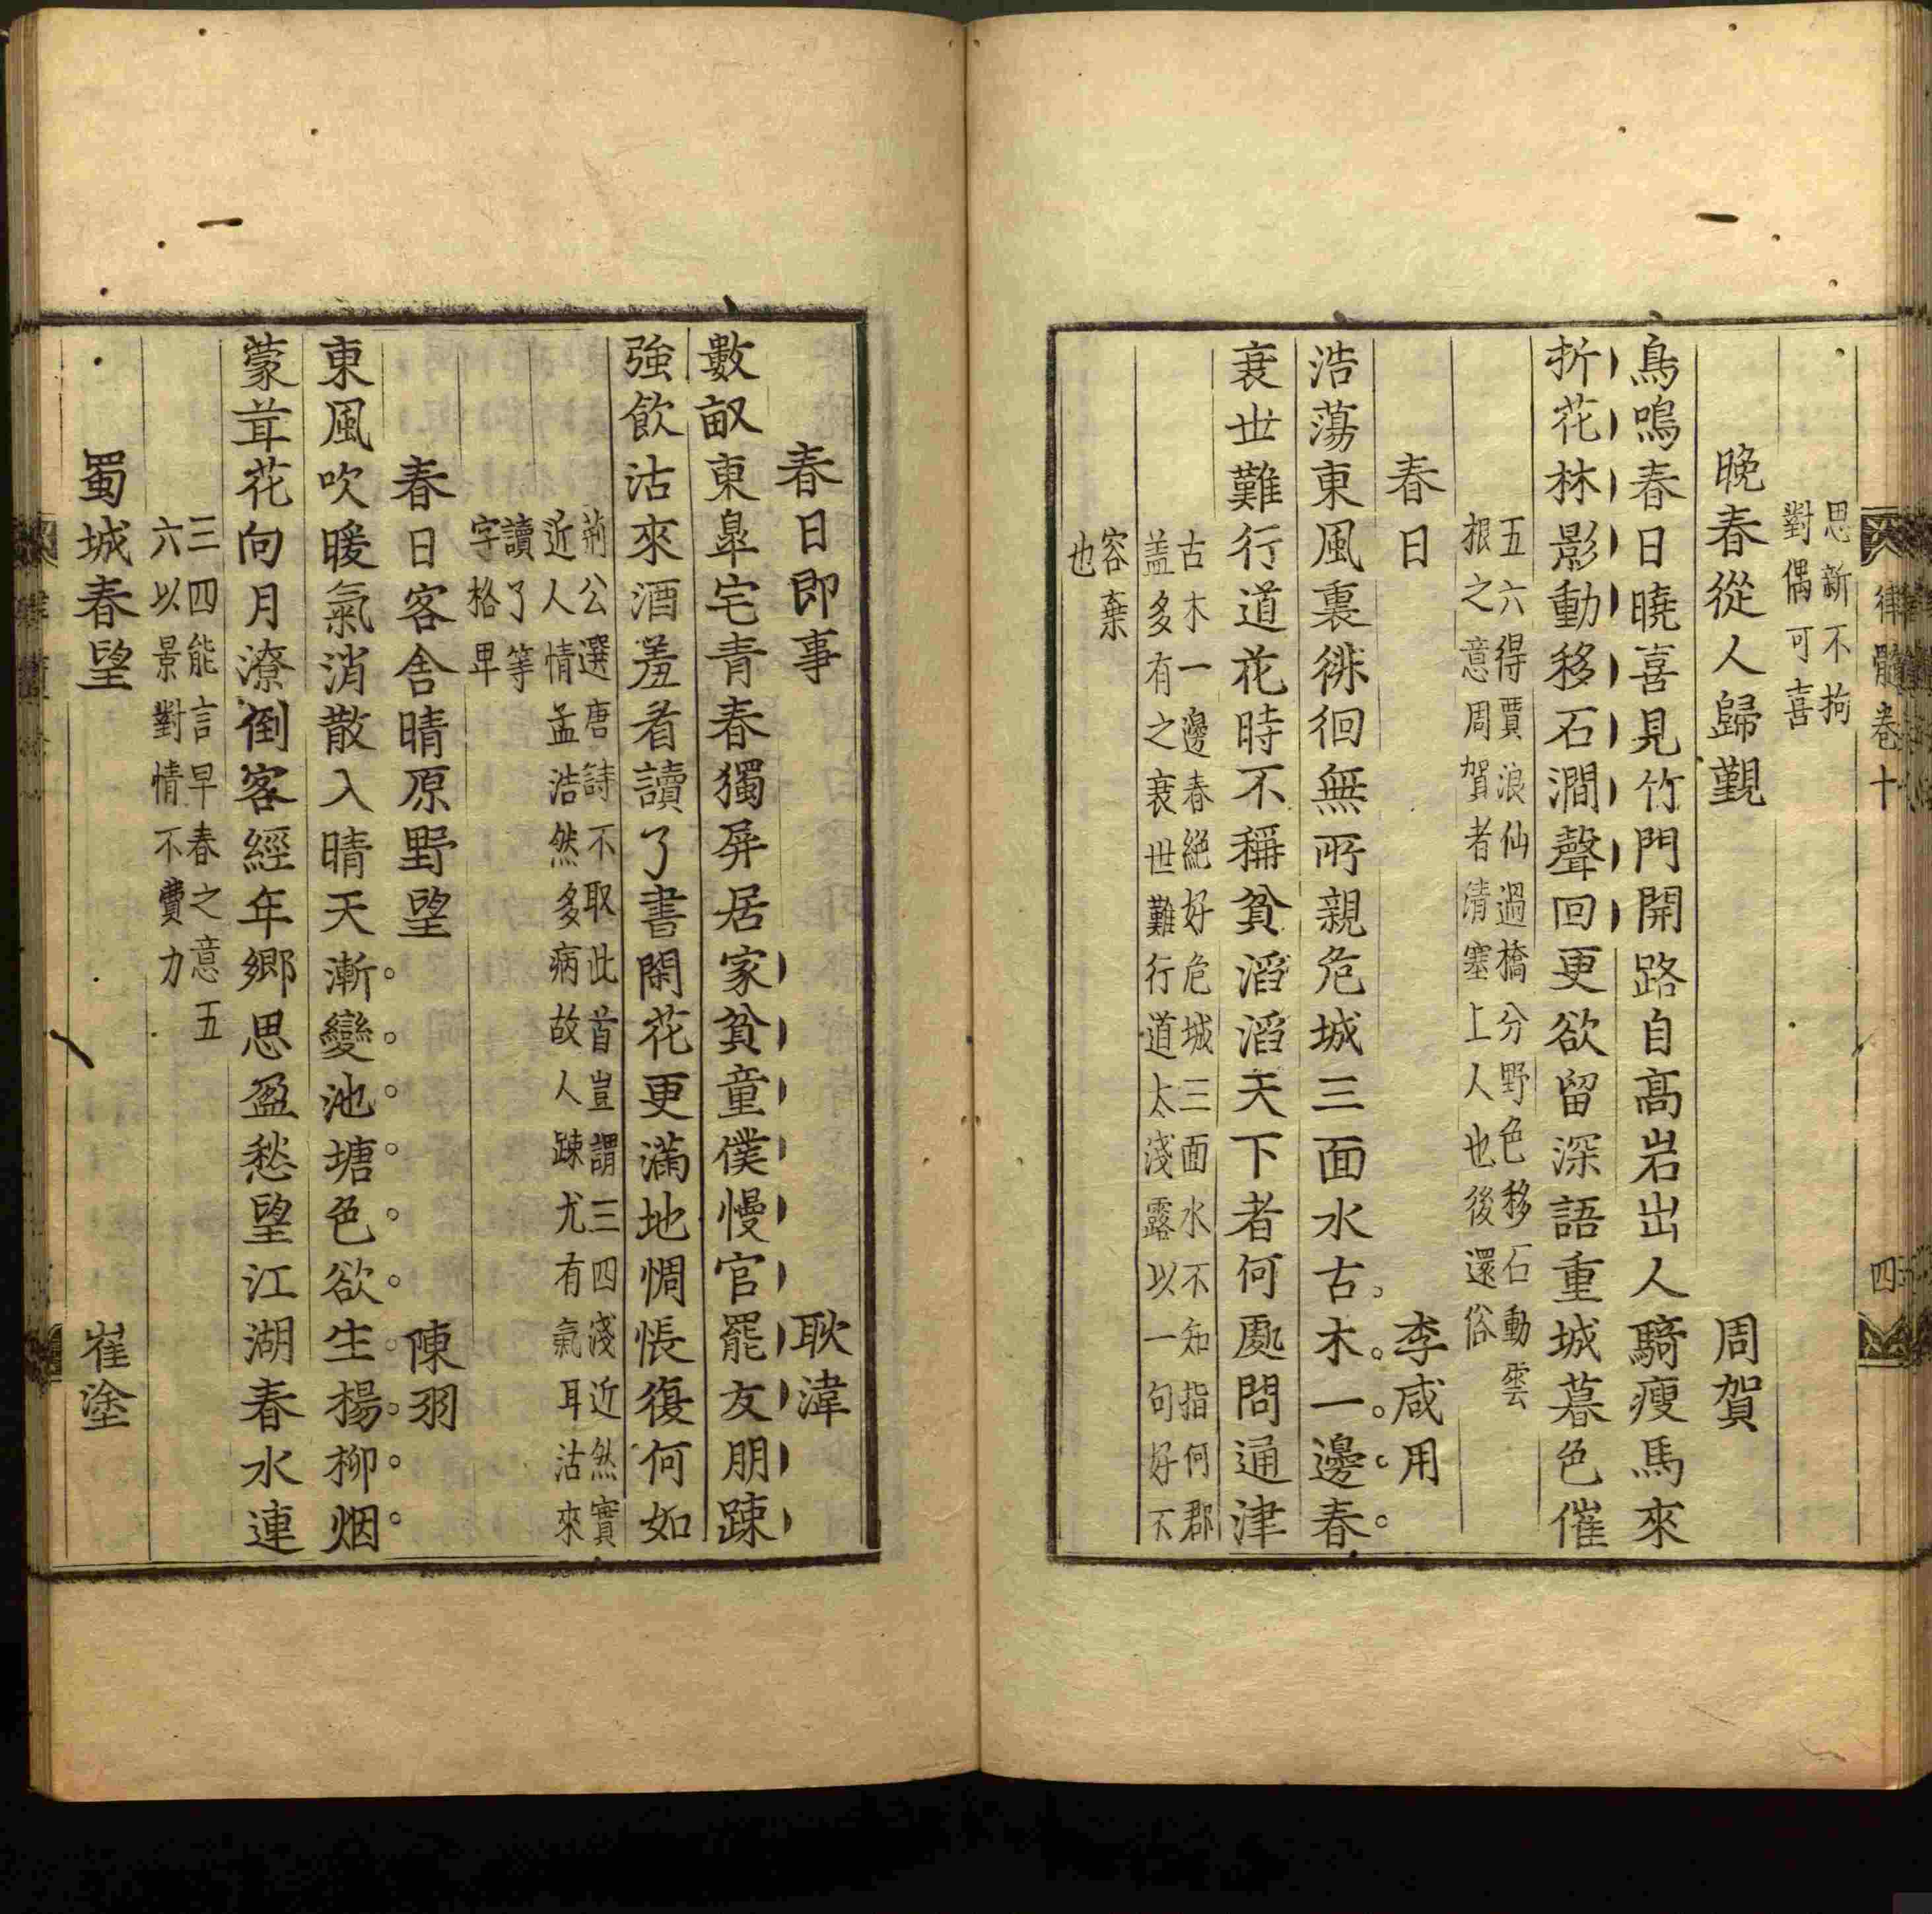 律髓卷十 四
思新不拘
對偶可喜
晩春從人歸覲 周賀
鳥鳴春日曉喜見竹門開路自高岩出人騎瘦馬來
折花林影動移石澗聲回更欲留深語重城暮色催
五六得賈浪仙過橋分野色移石動雲
根之意周賀者清塞上人也後還俗
春日 李咸用
浩蕩東風裏徘徊無所親危城三面水古木一邊春
衰世難行道花時不稱貧滔滔天下者何處問通津
古木一邊春絕好危城三面水不知指何郡
盖多有之衰世難行道太淺露以一句好不
容棄
也
春日即事 耿湋
數畝東皐宅青春獨屏居家貧童僕慢官罷友朋踈
強飲沽來酒羞看讀了書閑花更滿地惆悵復何如
荊公選唐詩不取此首豈謂三四淺近然實
近人情孟浩然多病故人踈尤有氣耳沽來
讀了等
字格卑
春日客舍晴原野望 陳羽
東風吹暖氣消散入晴天漸變池塘色欲生楊柳烟
蒙茸花向月潦倒客經年鄉思盈愁望江湖春水連
三四能言早春之意五
六以景對情不費力
蜀城春望 崔塗